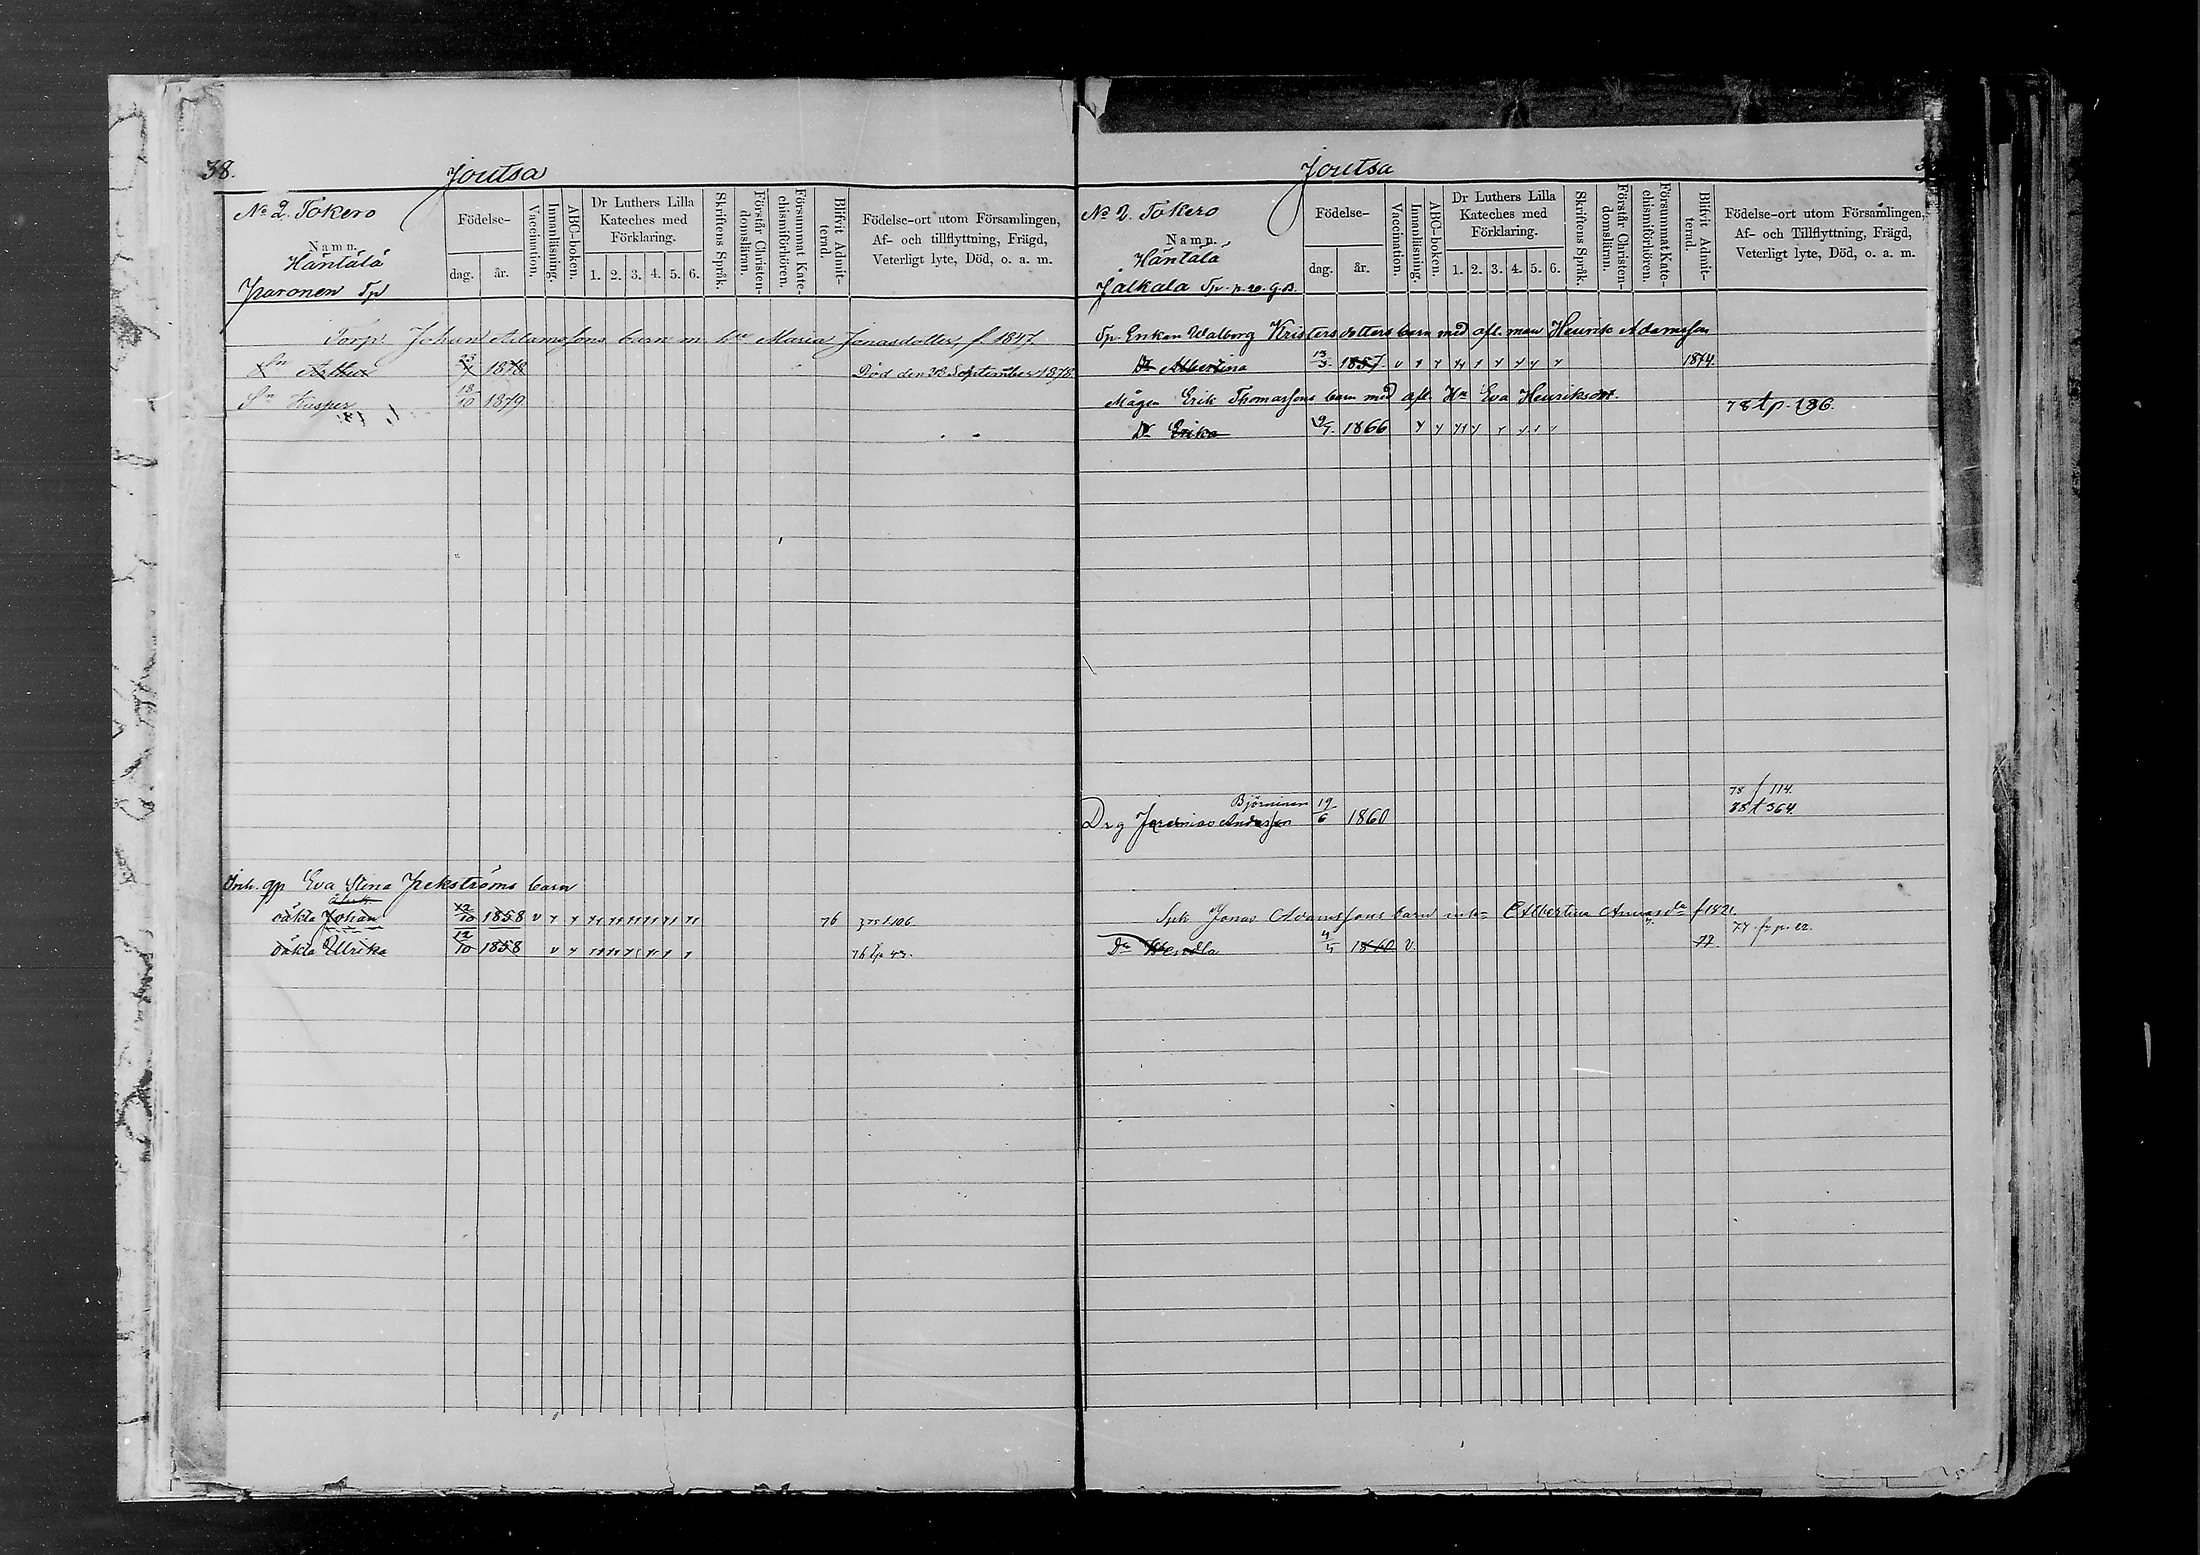 38.
Joutsa
No 2. Tokero
Namn.
Häntälä
Iparonen Tp
Födelse-
dag. år.
Vaccination.
Innanläsning.
ABC-boken.
Dr Luthers Lilla
Kateches med
Förklaring.
1. 2. 3. 4. 5. 6.
Skriftens Språk.
Förstår Christen-
domsläran.
Försummat Kate-
chismiförhören.
Blifvit Admit-
terad.
Födelse-ort utom Församlingen,
Af- och tillflyttning, Frägd,
Veterligt lyte, Död, o. a. m.
Torp. Johan Adamssons barn m hu Maria Jonasdotter f 1847
Sn Arthur 1878 Död den September 1878.
Sn Kasper 18/10 1879
Inh. gp Eva Stina Jrekströms barn
oäkta Johan 12/10 1858 v 76
oäkta Ulrika 12/10 1858 76 tp 47.
Joutsa
No 2. Tokero
Namn.
Häntälä
Jälkälä Tp. p. 20. g.B.
Födelse-
dag. år.
Vaccination.
Innanläsning.
ABC-boken.
Dr Luthers Lilla
Kateches med
Förklaring.
1. 2. 3. 4. 5. 6.
Skriftens Språk.
Förstår Christen-
domsläran.
Försummat Kate-
chismiförhören.
Blifvit Admit-
terad.
Födelse-ort utom Församlingen,
Af- och Tillflyttning, Frägd,
Veterligt lyte, Död, o. a. m.
Tp. Enkan Walborg Kristersdotters barn med afl. man Henrik Adamsson
Dr Albertina 13/3. 1857. v 1874.
Mågen Erik Thomassons barn med afl. Hu Eva Henriksdotr.
78 tp. 136.
Dr Erika 1866
78 f 114.
Björninen
Drg Jeremias Andersson 19/6 1860 78 t 364.
Spk Jonas Adamssons barn m hu Albertina Annasdr f 1821
77. fr p. 22.
Dr Wendla 1860 v. 77.